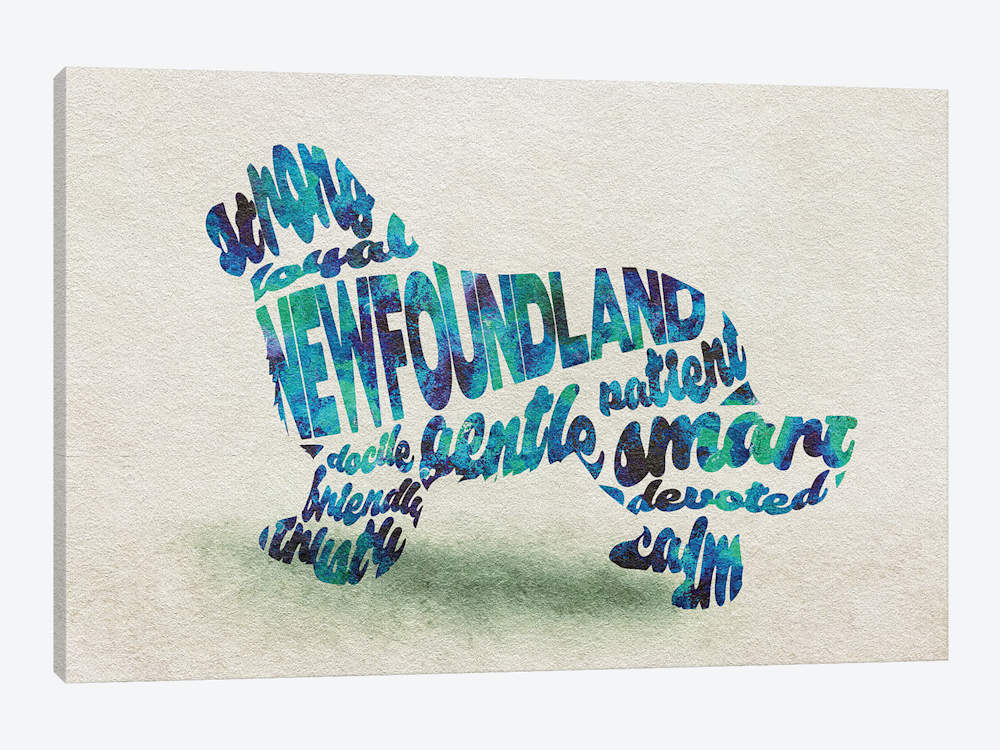 strong
loyal
NEWFOUNDLAND
patient
gentle
smart
docile
devoted
friendly
calm
trusty